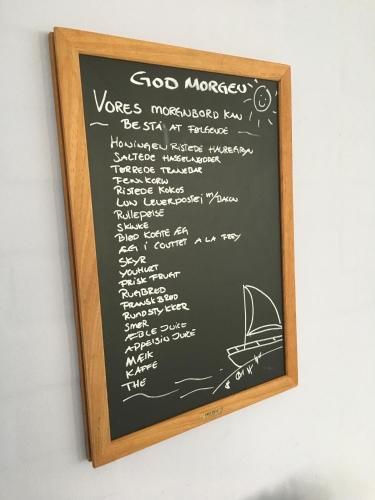 GOD MORGEN
VORES MORGNBORD KAN
BESTÅ AT FØLGENDE
HONINGEN RISTEDE HAUREGRYN
SALTEDE HASSELNØDDER
TØRREDE TRANEBÆR
FEM KORN
RISTEDE KOKOS
LUN LEVERPOSTEJ M/BACON
RULLEPØLSE
SKINKE
BLØD KOGTE ÆG
ÆG I COUTTET A LA FERY
SKYR
YOUHURT
FRISK FRUGT
RUGBRØD
FRANSKBRØD
RUNDSTYKKER
SMØR
ÆBLE JUICE
APPELSIN JUICE
MÆLK
KAFFE
THE